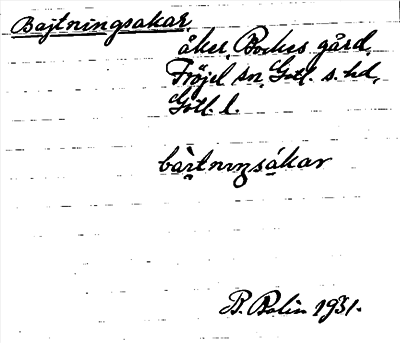 Bajtningsakar,
åker, Bockes gård,
Fröjel sn, Gotl. s. hd,
Gotl. l.
bàɪtnɪŋsákar
B. Bolin 1931.